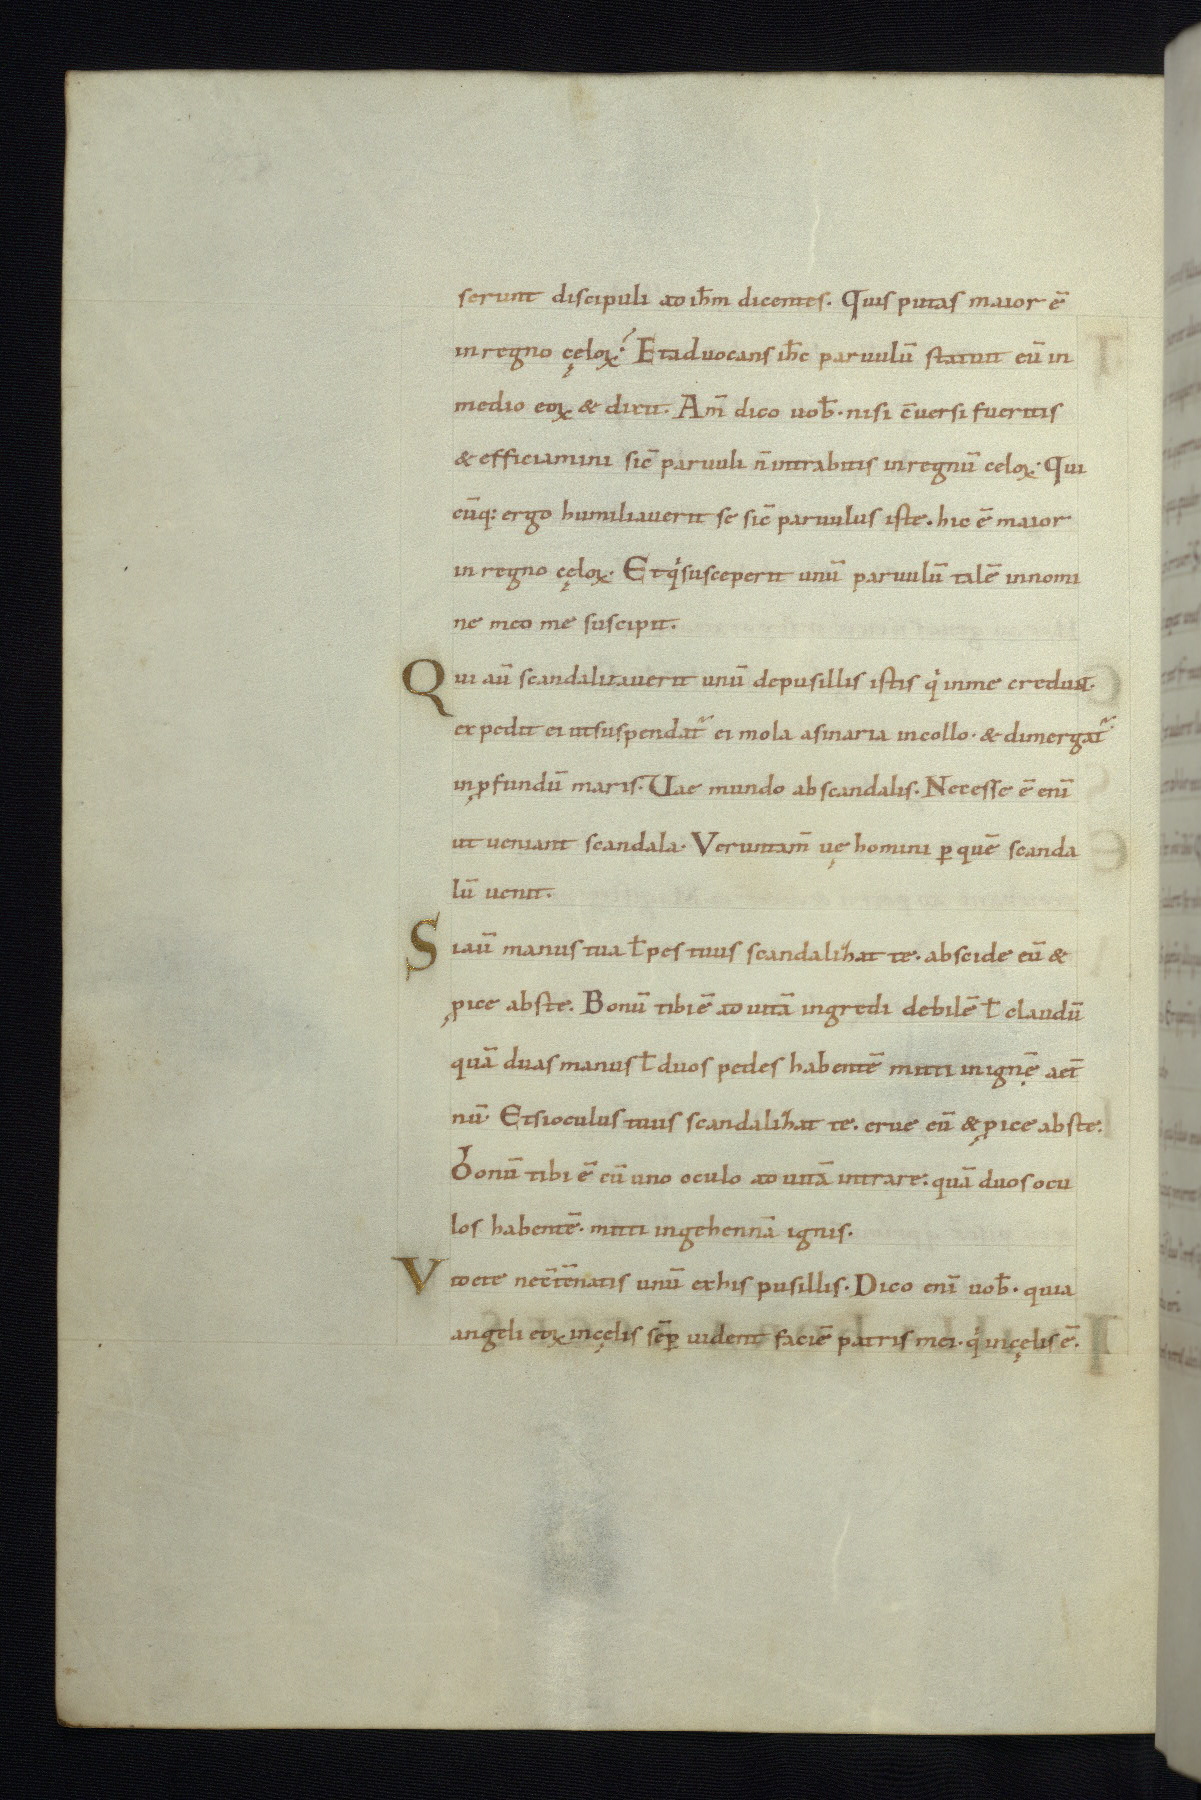 serunt discipuli ad ih̅m dicentes. Quis putas maior ē
in regno cęloꝝ? Et aduocans ih̅c paruulū statuit eū in
medio eoꝝ & dixit. Am̅ dico uob̅. nisi c̅uersi fueritis
& efficiamini sic̅ paruuli n̅ intrabitis in regnū celoꝝ. Qui
cūq: ergo humiliauerit se sic̅ paruulus iste. hic ē maior
in regno cęloꝝ. Et qͥ susceperit unū paruulū talē in nomi
ne meo me suscipit.
Qui aū scandalizauerit unū de pusillis istis qͥ in me credunt.
expedit ei ut suspendat᷑ ei mola asinaria in collo. & dimergat᷑
in ꝓfundū maris. Uae mundo ab scandalis. Necesse ē enī
ut ueniant scandala. Veruntam̅ uę homini ꝑ quē scanda
lū uenit.
Si aū manus tua ł pes tuus scandalizat te. abscide eū &
ꝓice abs te. Bonū tibi ē ad uitā ingredi debilē ł claudū
quā duas manus ł duos pedes habentē mitti in ignē aet̅
nū. Et si oculus tuus scandalizat te. erue eū & ꝓice abs te.
Bonū tibi ē cū uno oculo ad uitā intrare. quā duos ocu
los habentē. mitti in gehennā ignis.
Videte ne c̅tēnatis unū ex his pusillis. Dico enī uob̅. quia
angeli eoꝝ in cęlis sēꝑ uident faciē patris mei. qͥ in cęlis ē.